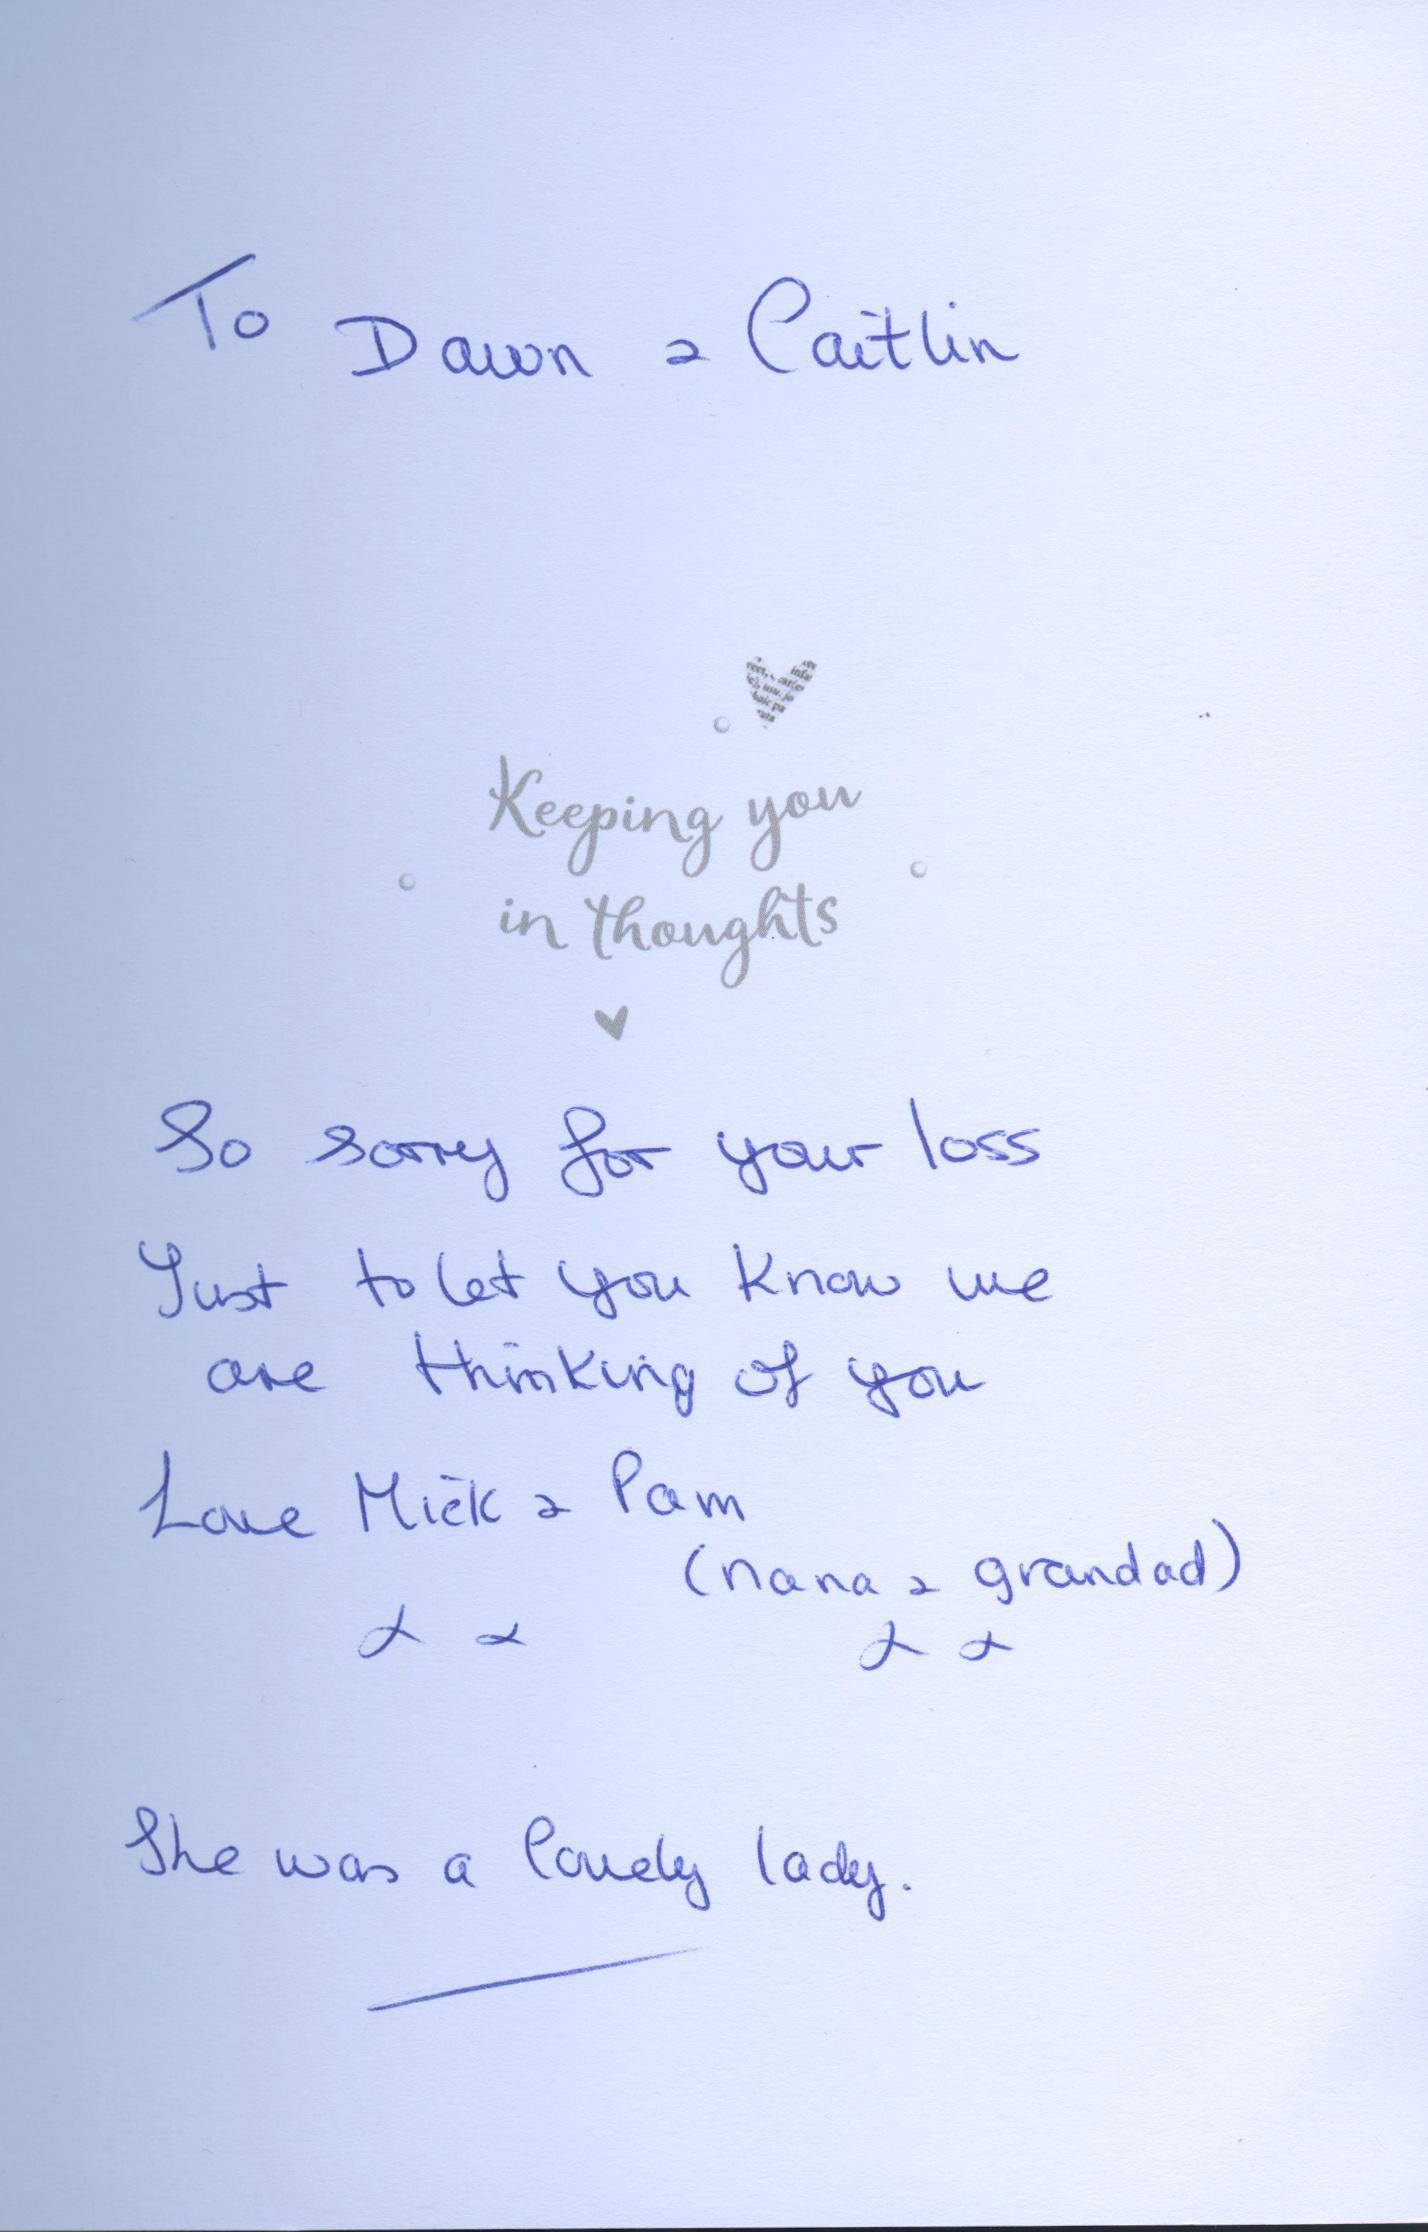 To Dawn & Caitlin
Keeping you
in thoughts
So sorry for your loss
Just to let you know we
are thinking of you
Love Mick & Pam
(nana & grandad)
x x x x
She was a lovely lady.